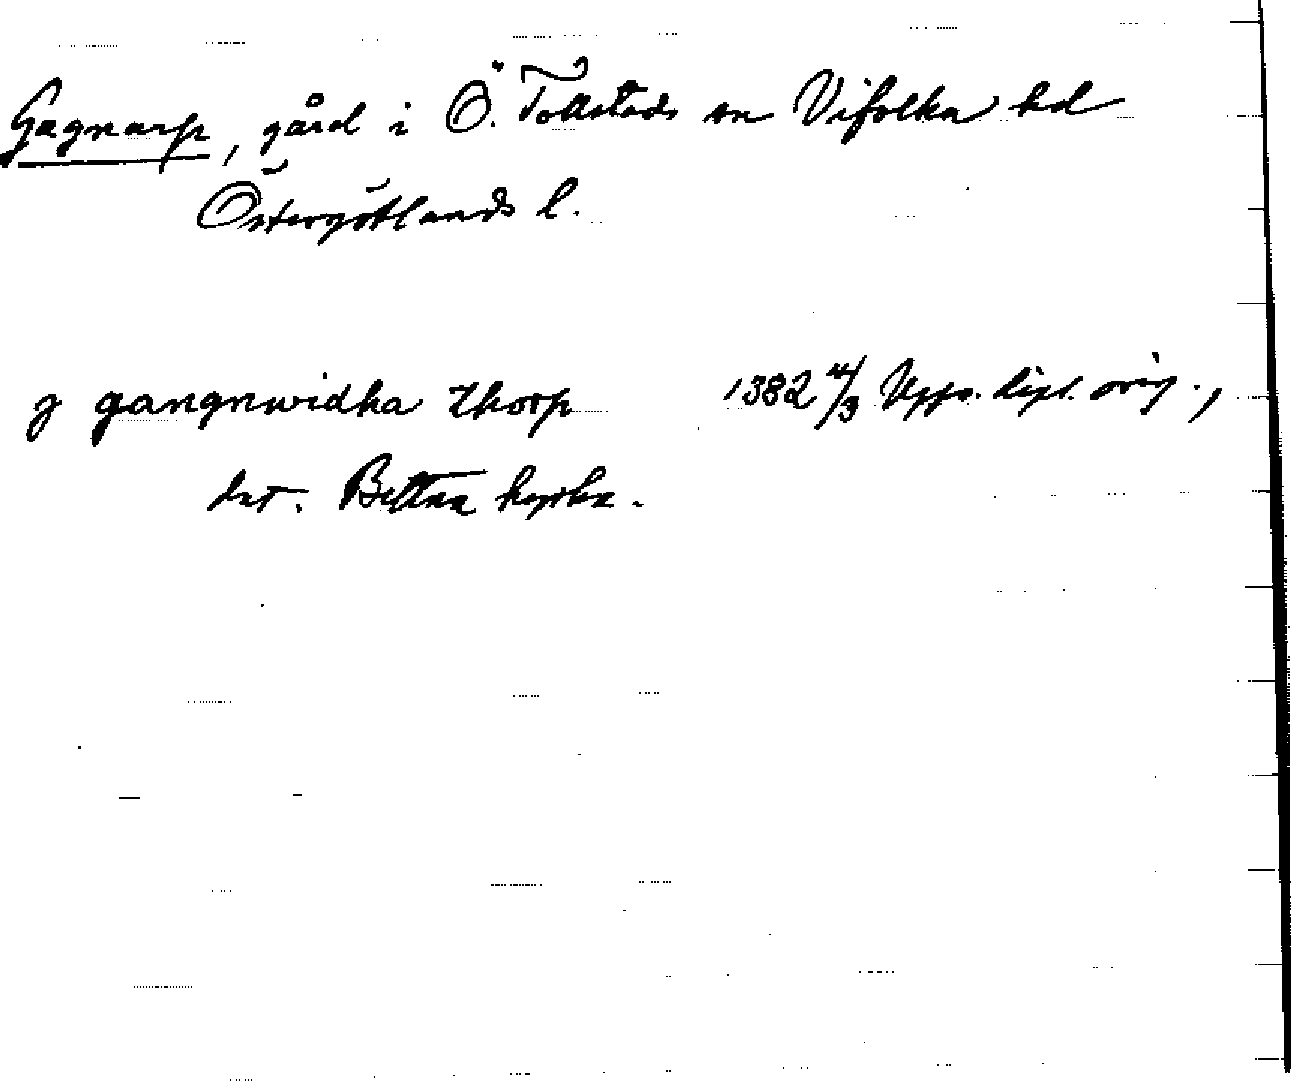 Gagnarp, gård i Ö. Tollstads sn Vifolka hd
Östergötlands l.
J gangnwidha thorp 1382 4/3 Upps. dipl. orig.,
dat. Bettna kyrka.